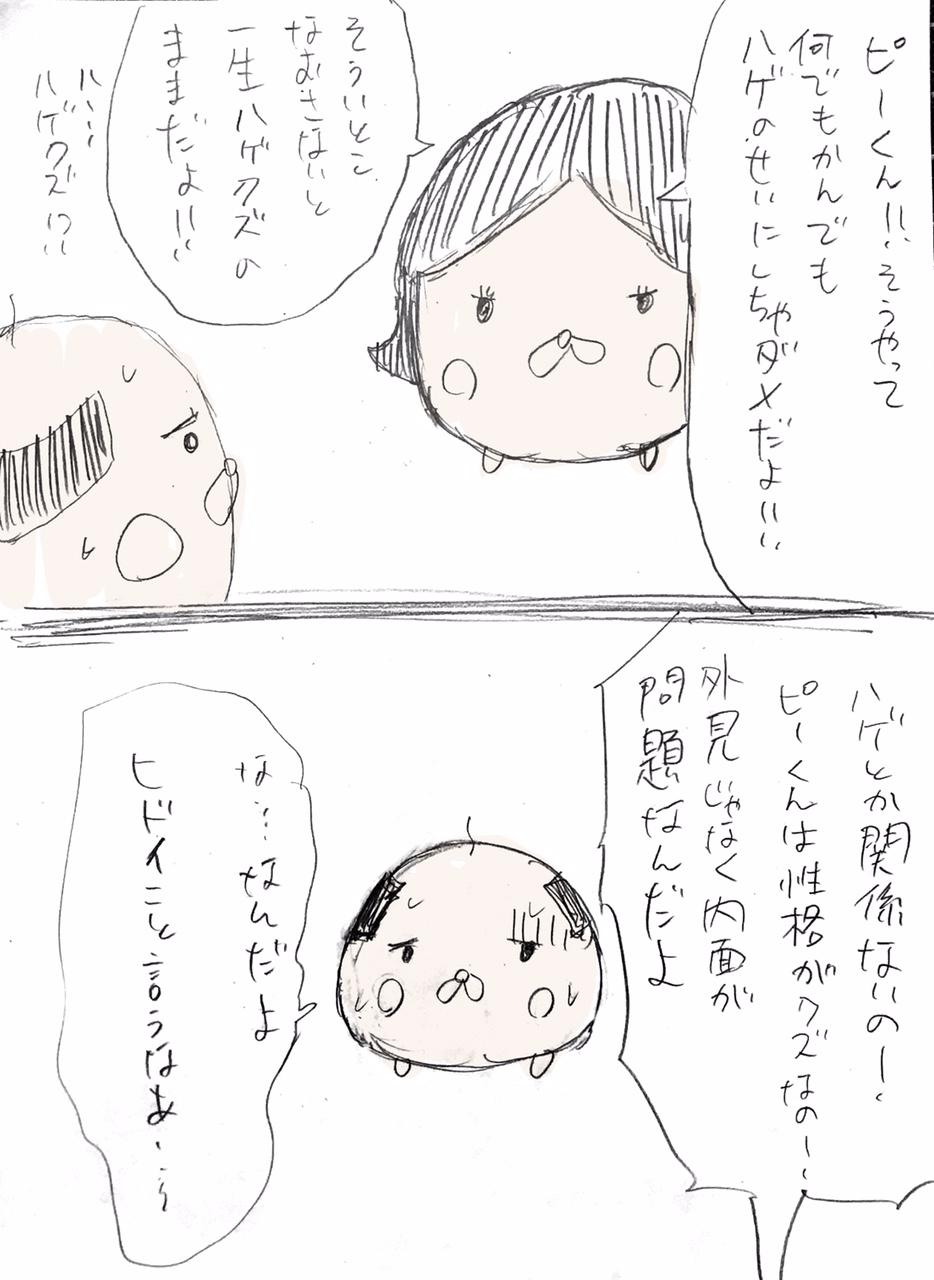 ピーくん!!そうやって
何でもかんでも
ハゲのせいにしちゃダメだよ!!
そういとこ
なおさないと
一生ハゲクズの
ままだよ!!
ハ…
ハゲクズ!?
ハゲとか関係ないの!
ピーくんは性格がクズなの!
外見じゃなく内面が
問題なんだよ
な…なんだよ
ヒドイこと言うなあ…